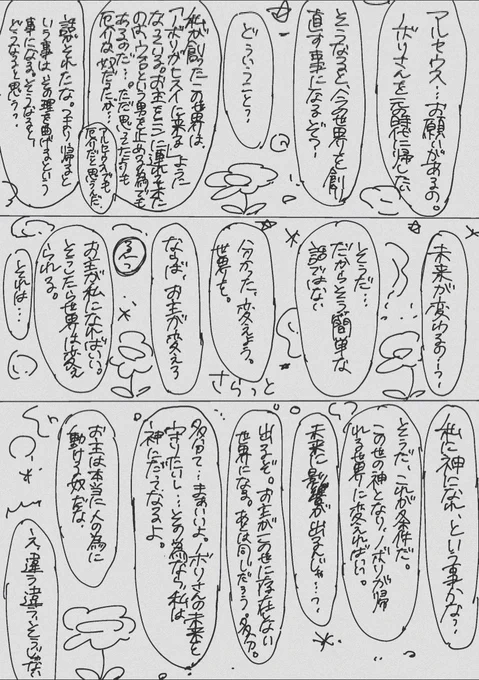 アルセウス…お願いがあるの。
ノボリさんを元の時代に帰したい
そうなると今の世界を創り
直す事になるぞ？
どういうこと？
私が創ったこの世界は
ノボリがヒスイに来るように
なっている。お主をここに連れてきた
のはウォロという男を止める為でも
あるのだ…。ただ思ってたよりも
厄介な奴だったが…
アルセウスでも
厄介だと思うんだ。
話がそれたな。つまり帰すと
いう事は、その理を曲げるという
事になる。そうなると
どうなると思う？
未来が変わるの…？
そうだ…
だからそう簡単な
話ではない
分かった、変えよう。
世界を。
さらっと
ならば、お主が変えろ
えっ
お主が私になればいい。
そうしたら世界は変え
られる。
それは…
私に神になれ、という事かな？
そうだ、これが条件だ。
この世の神となり、ノボリが帰
れる世界に変えればいい。
未来に影響が出るんじゃ…？
出るぞ。お主がこの世に存在しない
世界になる。あとは同じだろう。多分。
多分て…まぁいいよ。ノボリさんの未来を
守りたいし…その為なら、私は
神にだってなるよ。
お主は本当に人の為に
動ける奴だな。
え、違う違う、そうじゃない